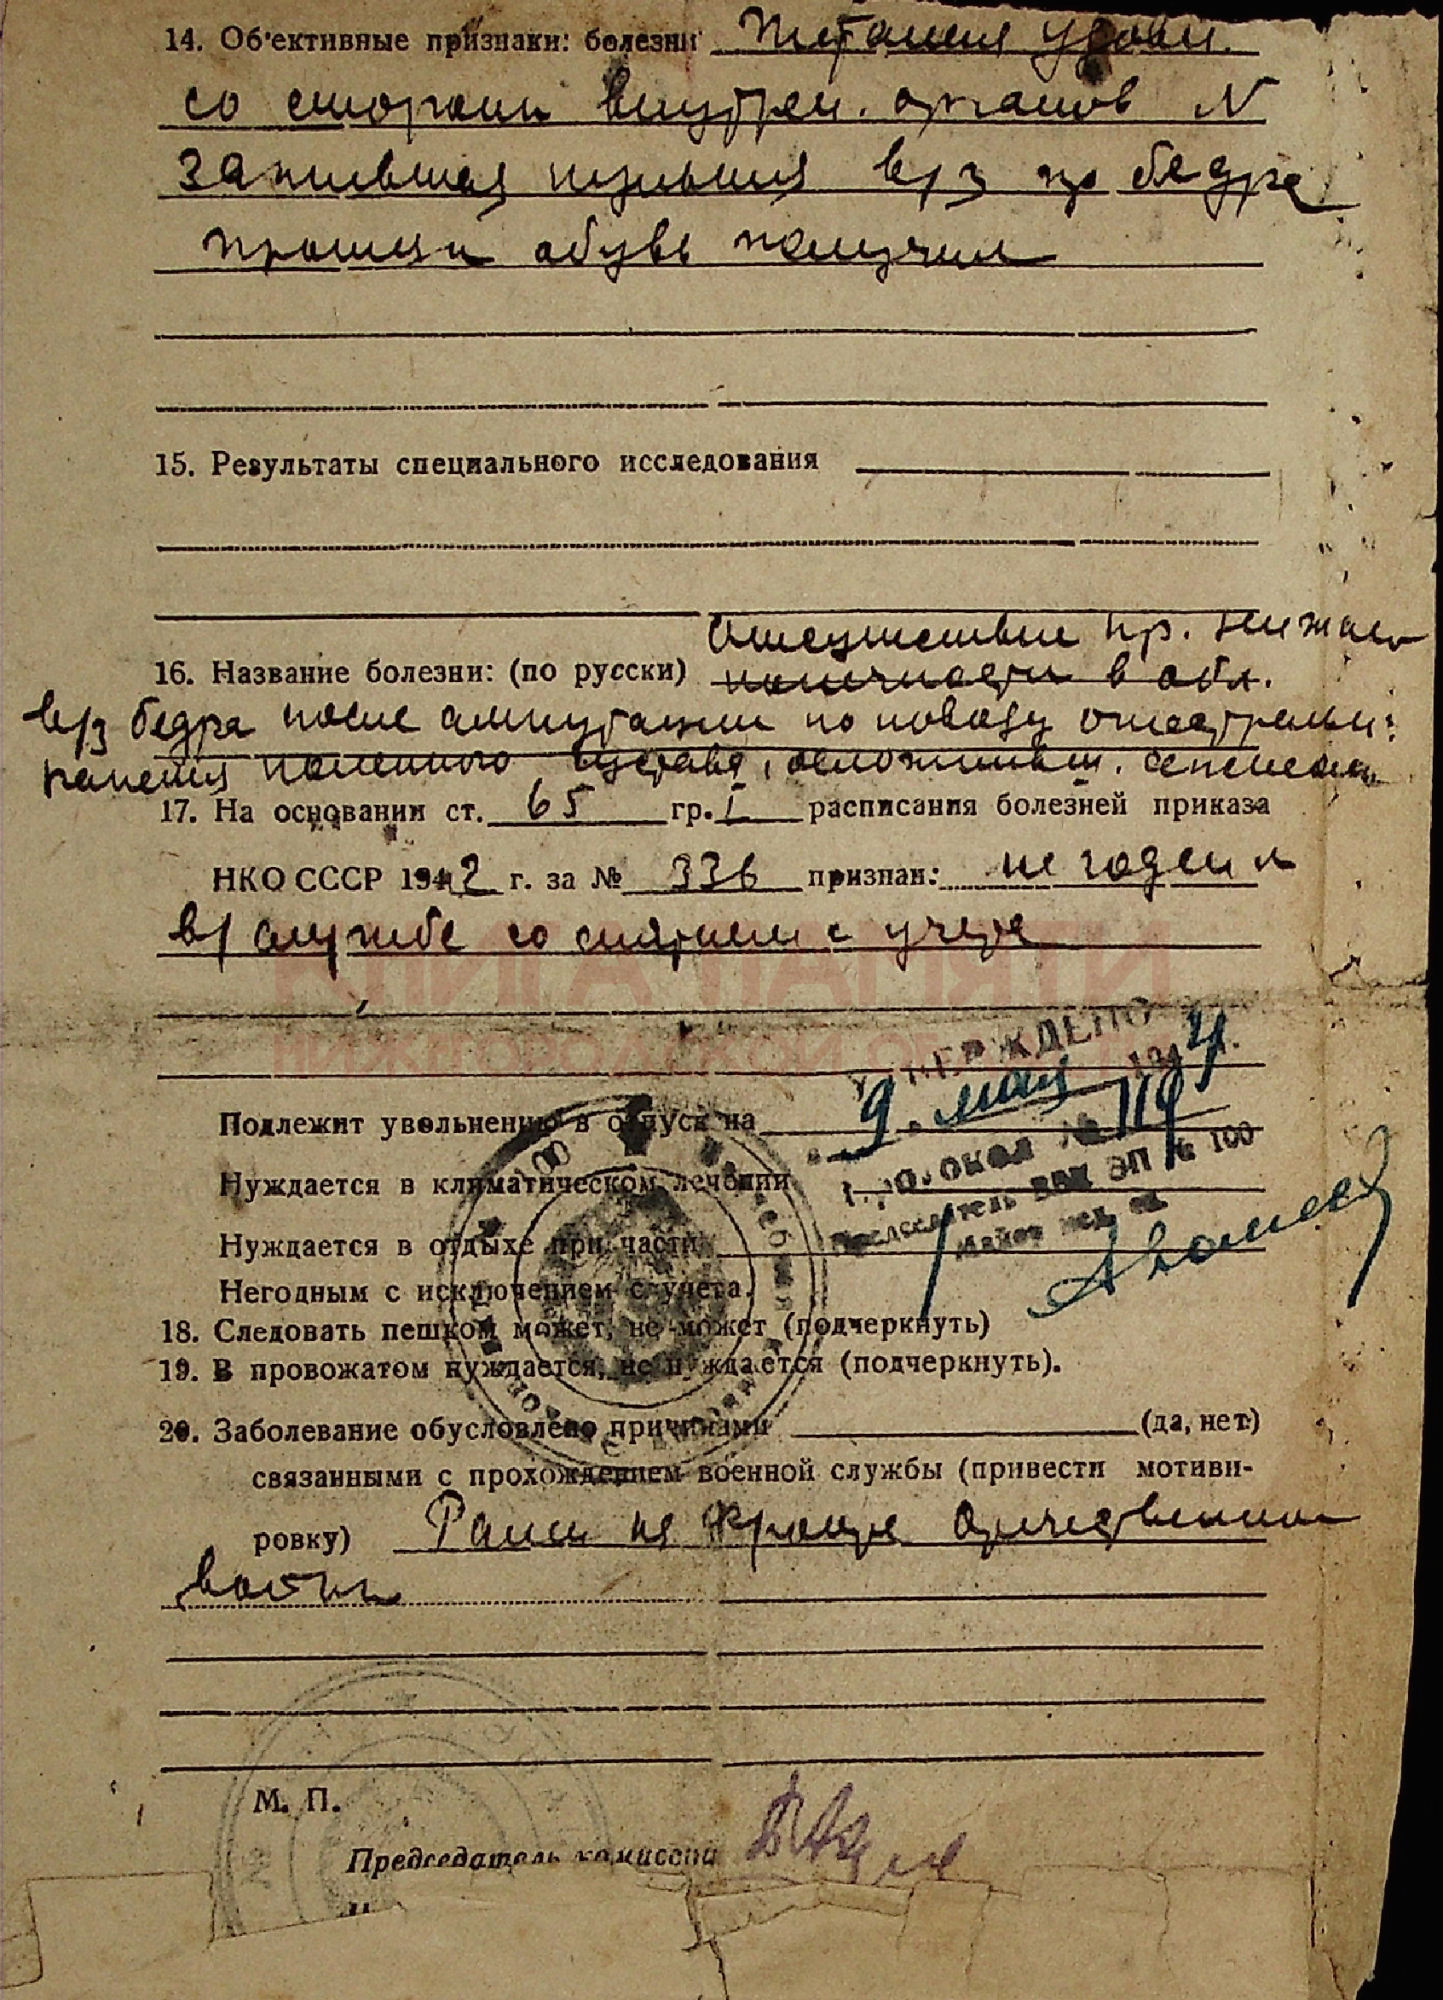 14. Об'ективные признаки: болезни Питания удовл.
со стороны внутрен. органов N
зажившая культя в/3 пр бедра
обувь получил
15. Результаты специального исследования
Отсутствие пр. нижней
16. Название болезни: (по русски) конечности в обл.
в/3 бедра после ампутации по поводу
коленного сустава, осложнивш. сепсисом
17. На основании ст. 65 гр. I расписания болезней приказа
НКО СССР 1942 г. за № 336 признан: не годен к
в/службе со снятием с учета
КНИГА ПАМЯТИ
НИЖЕГОРОДСКОЙ ОБЛАСТИ
УТВЕРЖДЕНО
"9" мая 1944 г.
Подлежит увольнению в отпуск на
Протокол №
Нуждается в климатическом лечении
Председатель ВВК ЭП № 100
Майор мед. сл.
Нуждается в отдыхе при части
Негодным с исключением с учета.
18. Следовать пешком может, не может (подчеркнуть)
19. В провожатом нуждается, не нуждается (подчеркнуть).
20. Заболевание обусловлено причинами (да, нет)
связанными с прохождением военной службы (привести мотиви-
ровку) Ранен на фронте Отечественной
войны
М. П.
Председатель комиссии